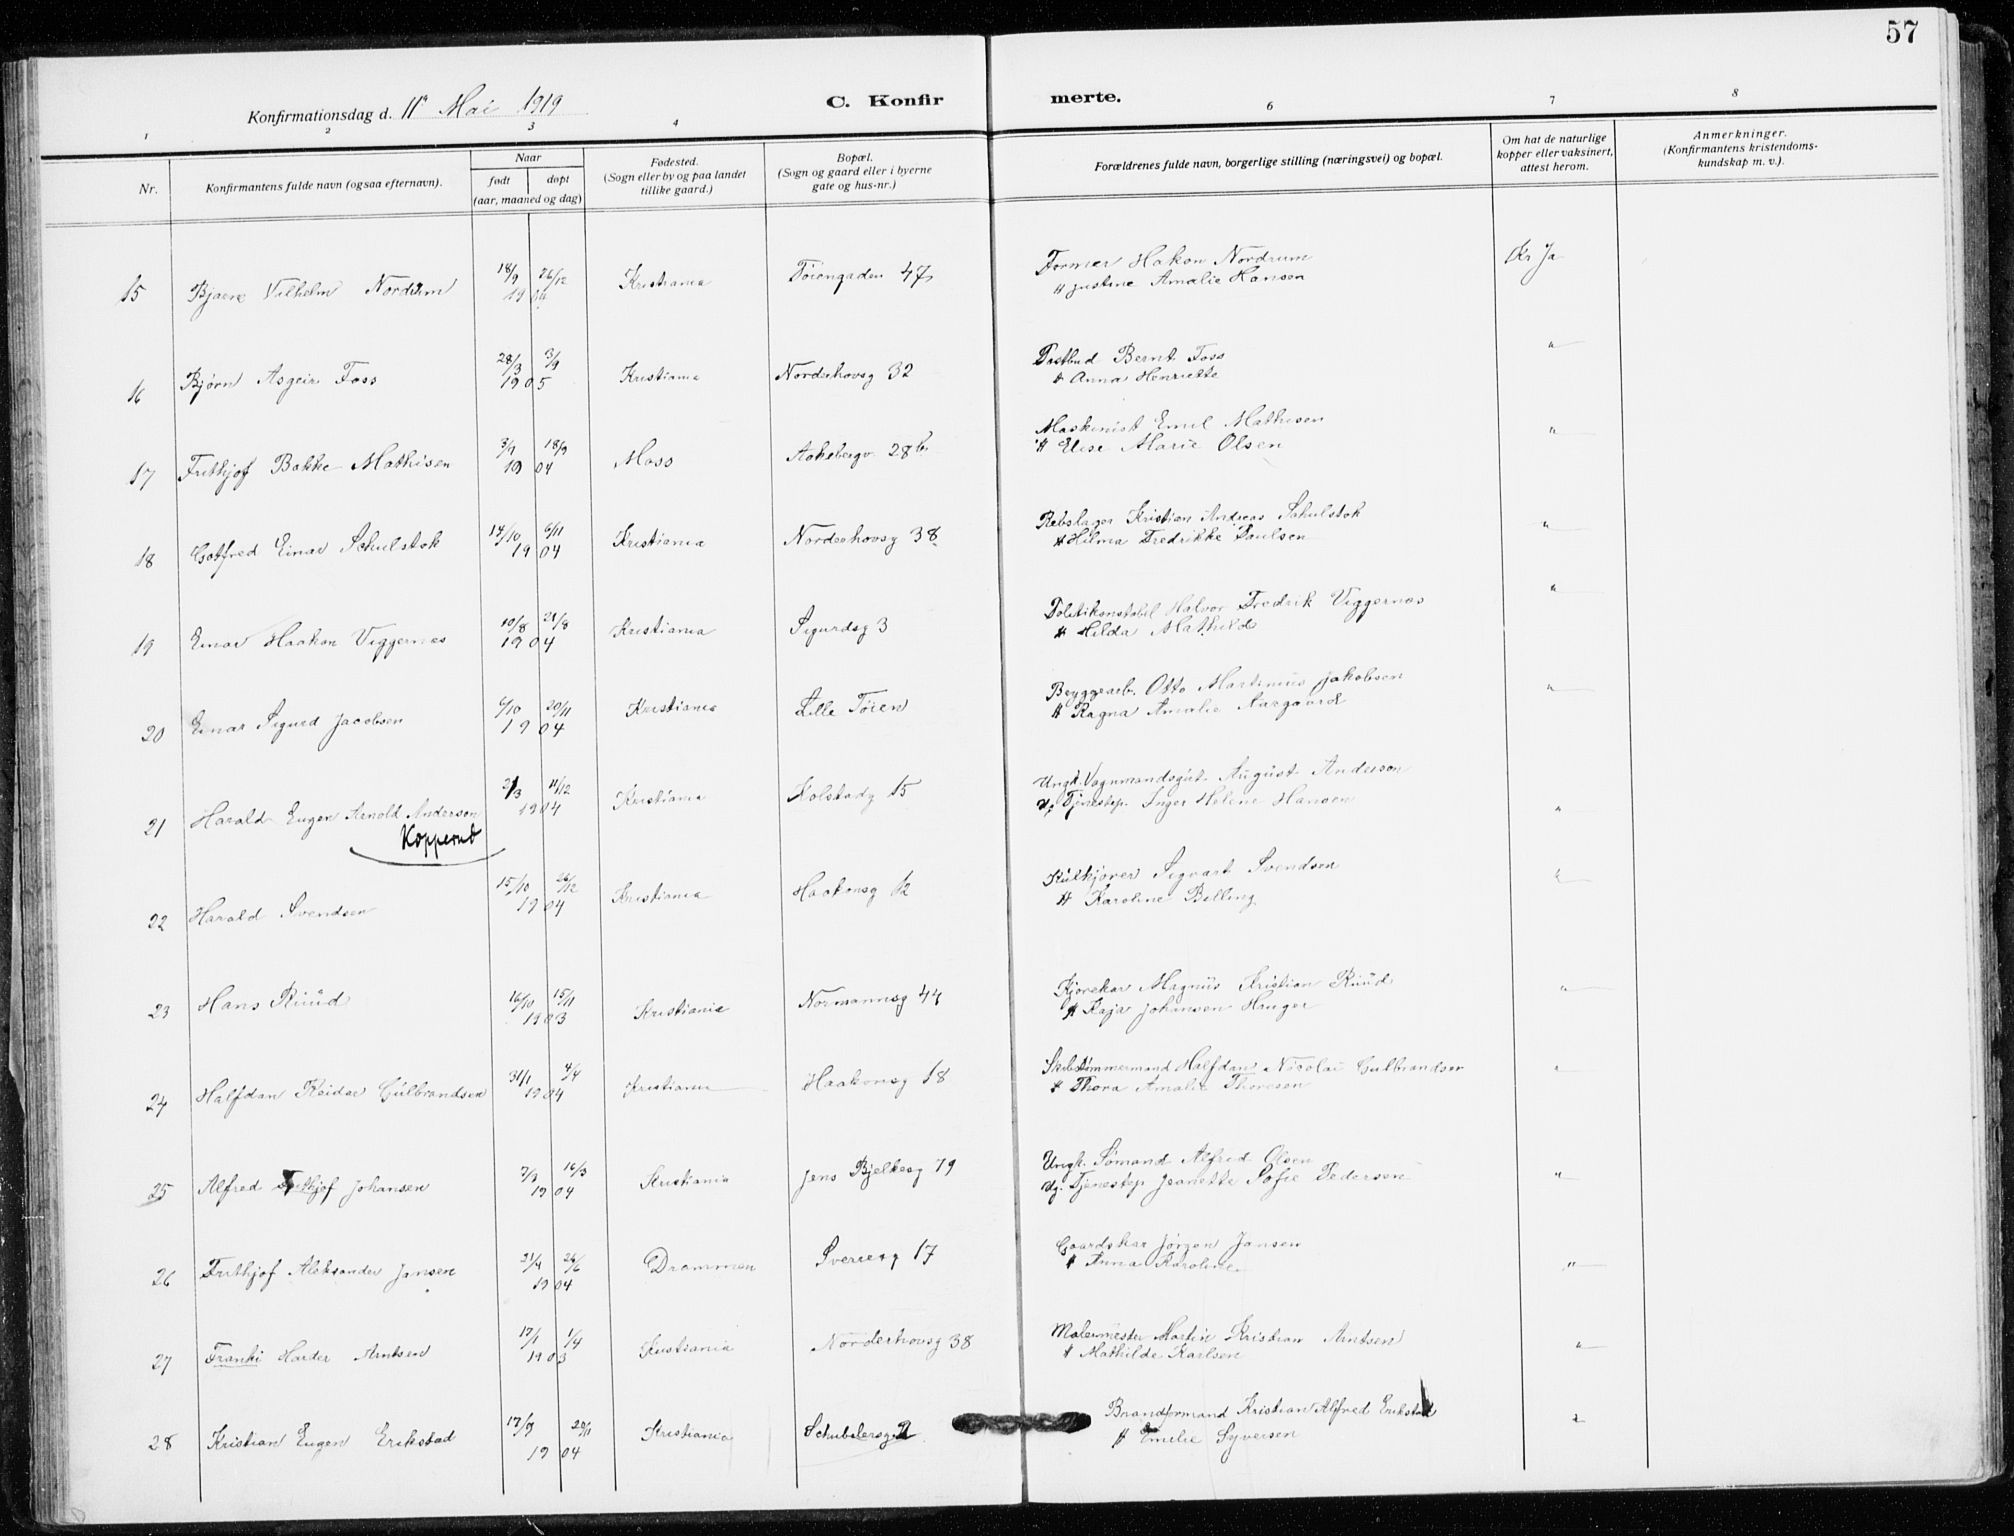 57
Konfirmationsdag d. 11te Mai 1919
C. Konfirmerte.
1 2 3 4 6 7 8
Nr.
Konfirmantens fulde navn (ogsaa efternavn).
Naar
født døpt
(aar, maaned og dag)
Fødested.
(Sogn eller by og paa landet
tillike gaard.)
Bopæl.
(Sogn og gaard eller i byerne
gate og hus-nr.)
Forældrenes fulde navn, borgerlige stilling (næringsvei) og bopæl.
Om hat de naturlige
kopper eller vaksinert,
attest herom.
Anmerkninger.
(Konfirmantens kristendoms-
kundskap m. v.).
15 Bjarne Vilhelm Nordrum 18/9 26/12 1904 Kristiania Tøiengaden 47 Former Hakon Nordrum Ja
H Justine Amalie Hansen
16 Bjørn Asgeir Foss 28/3 3/9 1905 Kristiania Norderhovsg 32 Postbud Bernt Foss "
H Anna Henriette
17 Frithjof Bakke Mathisen 3/7 18/9 1904 Moss Aakebergv. 28b Maskinist Emil Mathisen "
H Elise Marie Olsen
18 Gotfred Einar Schulstok 14/10 6/11 1904 Kristiania Norderhovsg 38 Rebslager Kristian Andreas Schulstok "
H Hilma Fredrikke Paulsen
19 Einar Haakon Viggernes 10/8 21/8 1904 Kristiania Sigurdsg 3 Politikonstabel Halvor Fredrik Viggernes "
H Hilda Mathild
20 Einar Sigurd Jacobsen 6/10 20/11 1904 Kristiania Lille Tøien Bryggearb. Otto Martinius Jakobsen "
H Ragna Amalie Aargaard
21 Harald Eugen Arnold Anderson 21/3 11/12 1904 Kristiania Kolstadg 15 Ungk. Vognmandsgut August Anderson
Kopperud
Ug. Tjenestep. Inger Helene Hansen "
22 Harald Svendsen 15/10 26/12 1904 Kristiania Haakonsg 12 Kulkjører Sigvart Svendsen "
H Karoline Belling
23 Hans Ruud 16/10 15/11 1903 Kristiania Normannsg 44 Kjørekar Magnus Kristian Ruud "
H Kaja Johansen Hauger
24 Halfdan Reidar Gulbrandsen 31/1 4/4 1904 Kristiania Haakonsg 18 Skibstømmermand Halfdan Nicolai Gulbrandsen "
H Thora Amalie Thoresen
25 Alfred Frithjof Johansen 7/3 16/3 1904 Kristiania Jens Bjelkesg 79 Ungk. Sømand Alfred Olsen
Ug. Tjenestep Jeanette Sofie Pedersen "
26 Frithjof Aleksander Jansen 21/4 26/6 1904 Drammen Sverresg 17 Gaardskar Jørgen Jansen
H Anna Karoline "
27 Franki Harder Arntsen 17/1 1/4 1903 Kristiania Norderhovsg 38 Malermester Martin Kristian Arntsen
H Mathilde Karlsen "
28 Kristian Eugen Erikstad 17/9 20/11 1904 Kristiania Schubelersg 2 Brandformand Kristian Alfred Erikstad "
H Emilie Syversen